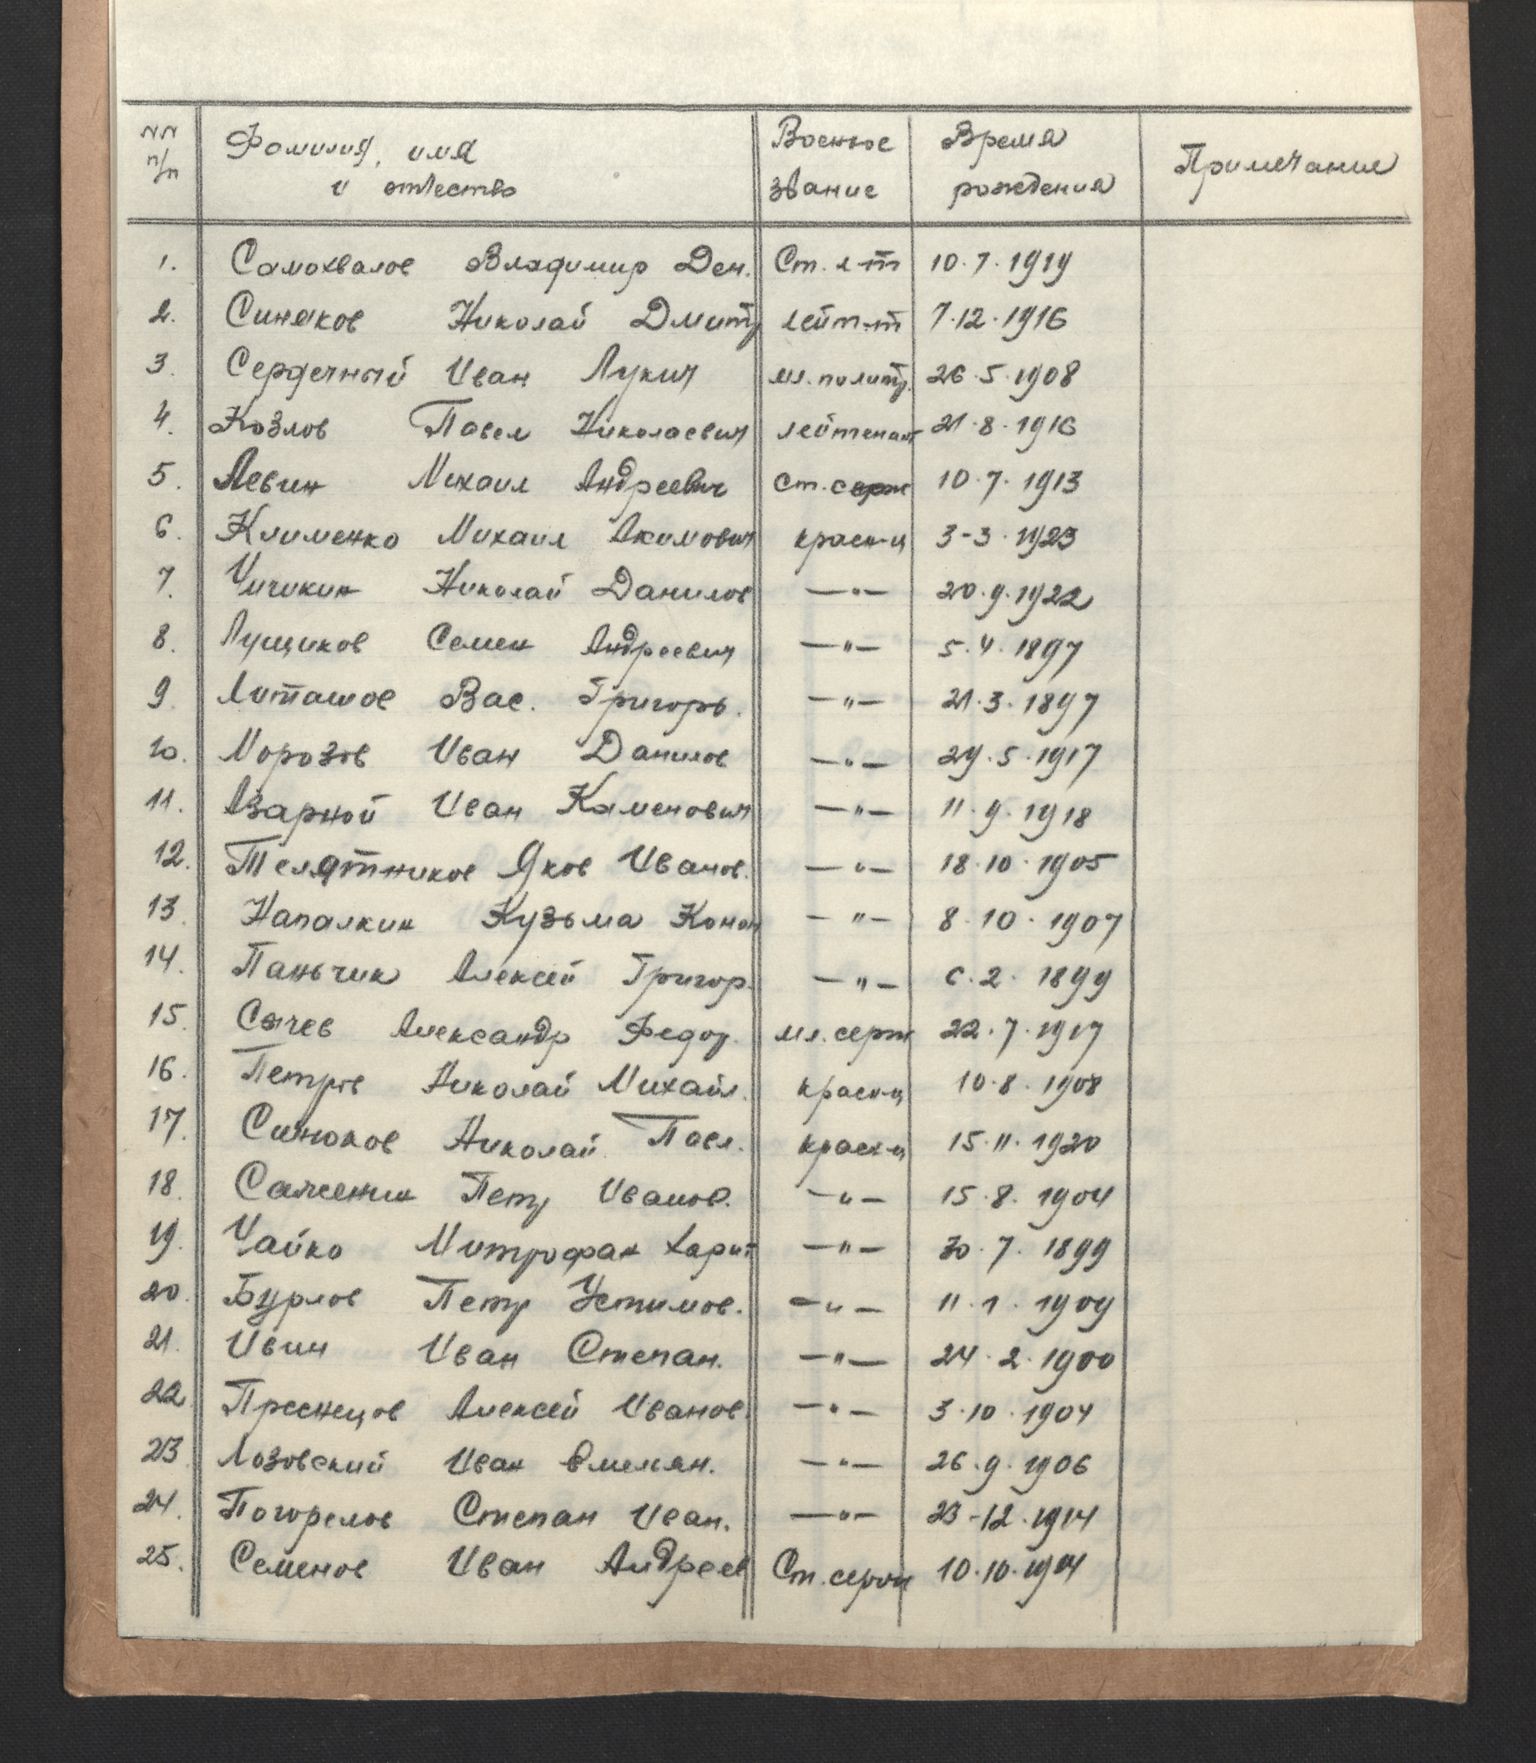 NN п/п Фамилия, имя и отчество Военное звание Время рождения Примечание
1. Самохвалов Владимир Ден. Ст. л-т 10.7.1919
2. Синяков Николай Дмитр лейт-т 7.12.1916
3. Сердечный Иван Лукич мл. политр. 26.5.1908
4. Козлов Павел Николаевич лейтенант 21.8.1916
5. Левин Михаил Андреевич ст. серж 10.7.1913
6. Клименко Михаил Акимович красн-ц 3-3.1923
7. Чичикин Николай Данилов —"— 20.9.1922
8. Лущиков Семен Андреевич —"— 5.4.1897
9. Литашов Вас. Григорь. —"— 21.3.1897
10. Морозов Иван Данилов —"— 29.5.1917
11. Азарной Иван —"— 11.9.1918
12. Телятников Яков Иванов. —"— 18.10.1905
13. Напалкин Кузьма Конон —"— 8.10.1907
14. Паньчик Алексей Григор. —"— 6.2.1899
15. Сычев Александр Федор. мл. серж 22.7.1917
16. Петров Николай Михайл. красн-ц 10.8.1908
17. Синюков Николай Павл. красн-ц 15.11.1920
18. Саженин Петр Иванов. —"— 15.8.1904
19. Чайко Митрофан Харит —"— 30.7.1899
20. Бурлов Петр Устимов. —"— 11.1.1909
21. Ивин Иван Степан. —"— 24.2.1900
22. Преснецов Алексей Иванов. —"— 3.10.1904
23. Лозовский Иван Емельян. —"— 26.9.1906
24. Погорелов Степан Иван. —"— 23-12.1914
25. Семенов Иван Андреев Ст. серж 10.10.1904